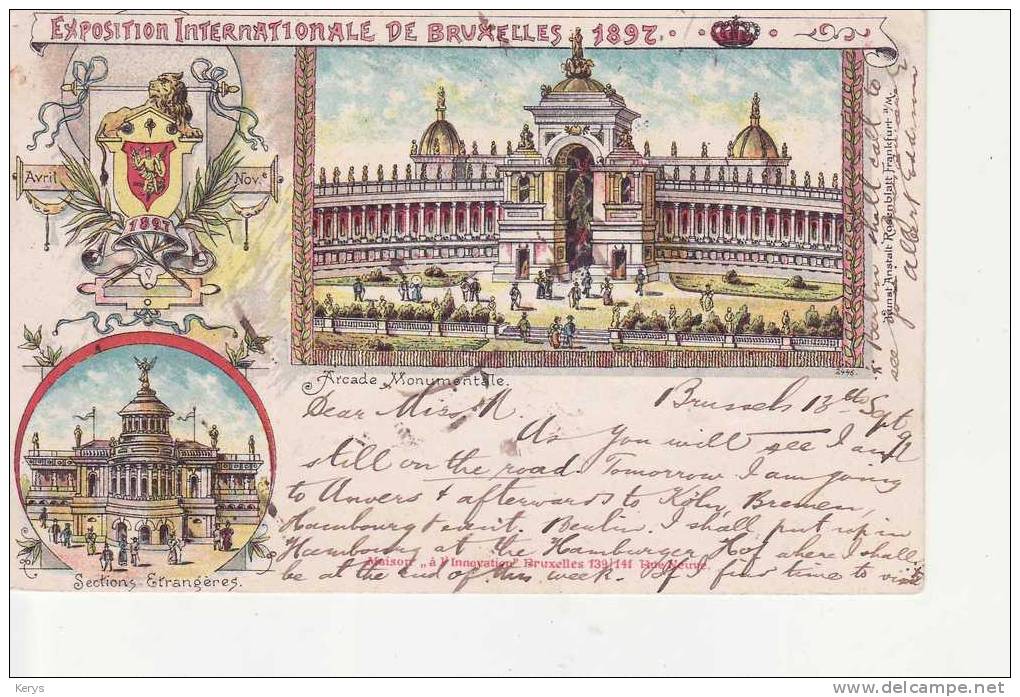 EXPOSITION INTERNATIONALE DE BRUXELLES 1897.
Avril
Nov.e
1897
Arcade Monumentale.
2446.
Kunst Anstalt Rosenblatt Frankfurt a/M.
Sections Etrangères.
Brussels 13th Sept 97
Dear Miss N.
As you will see I am
still on the road. Tomorrow I am going
to Anvers & afterwards to Köln, Bremen,
Hambourg & Berlin. I shall put up in
Hambourg at the Hamburger Hof where I shall
be at the end of this week. If I find time to visit
Berlin shall call to
see you
Albert
Maison „à l'Innovation" Bruxelles 139/141 Rue Neuve.
Kerys
www.delcampe.net